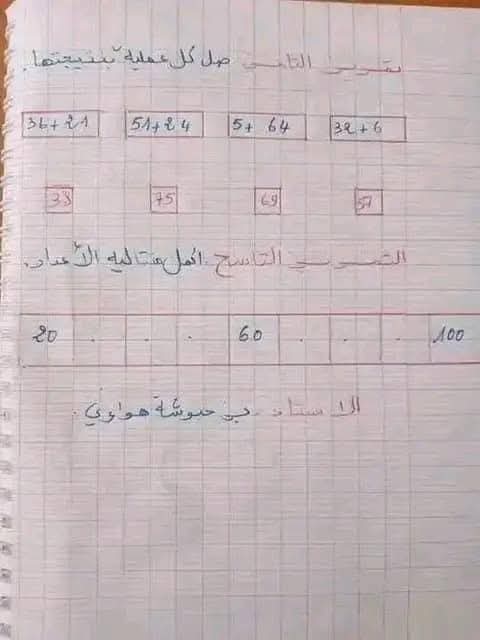 تمرين الثامن صل كل عملية بنتيجتها.
36+21 51+24 5+64 32+6
38 75 69 57
التمرين التاسع. اكمل متتالية الأعداد.
20 . . . 60 . . . 100
الاستاذ. بن حبوشة هواري.